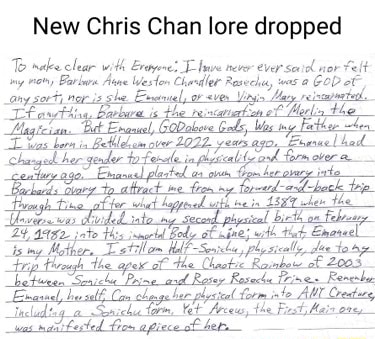 New Chris Chan lore dropped
To make clear with Everyone; I have never ever said nor felt
my mom, Barbara Anne Weston Chandler Rosechu, was a GOD of
any sort, nor is she Emanuel, or even Virgin Mary reincarnated.
If anything, Barbara is the reincarnation of Merlin the
Magician. But Emanuel, GOD above Gods, Was my Father when
I was born in Bethlehem over 2022 years ago. Emanuel had
changed her gender to female in physicality and form over a
century ago. Emanuel planted an ovum from her ovary into
Barbara's ovary to attract me from my forward-and-back trip
Through time after what happened with me in 1389 when the
Universe was divided into my second physical birth on February
24, 1982 into this immortal Body of Mine; with that, Emanuel
is my Mother. I still am Half-Sonichu, physically, due to my
trip through the apex of the Chaotic Rainbow of 2003
between Sonichu Prime and Rosey Rosechu Prime. Remember
Emanuel, herself, Can change her physical form into ANY Creature,
including a Sonichu form. Yet Arceus, the First, Main one,
was manifested from a piece of her.